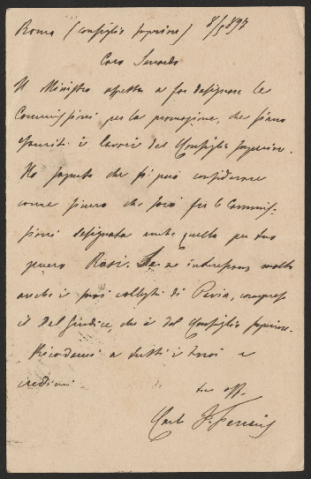 Roma (Consiglio Superiore) 8/5 897
Caro
Il Ministro aspetta a far designare le
Commissioni per la promozione, che siano
esauriti i lavori del Consiglio Superiore.
Ho saputo che si può considerare
come sicuro che sarà fra le Commis-
sioni designata anche quella per tuo
genero Rosi. Se ne interessano molto
anche i suoi colleghi di Pavia, compreso
il Del Giudice, che è del Consiglio Superiore.
Ricordami a tutti i tuoi e
credimi
tuo aff.
Carlo F. Ferraris